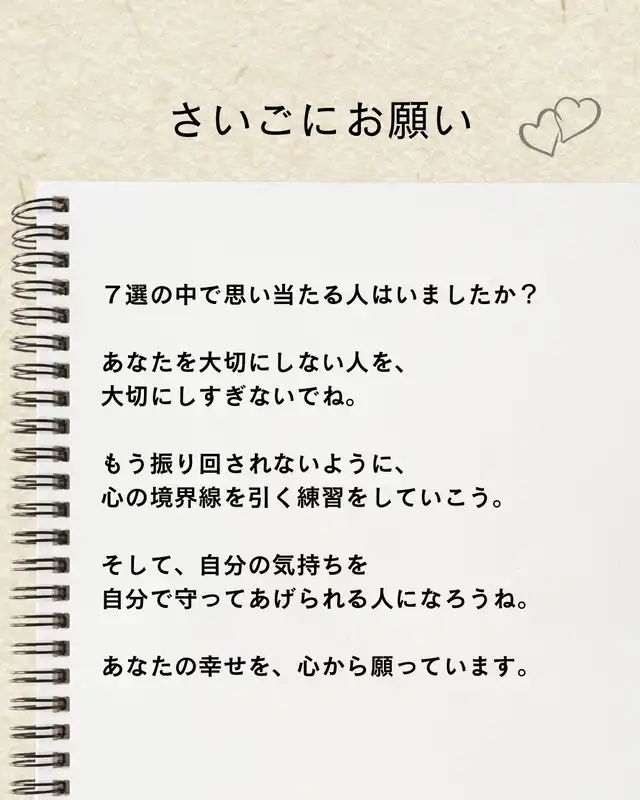 さいごにお願い
７選の中で思い当たる人はいましたか？
あなたを大切にしない人を、
大切にしすぎないでね。
もう振り回されないように、
心の境界線を引く練習をしていこう。
そして、自分の気持ちを
自分で守ってあげられる人になろうね。
あなたの幸せを、心から願っています。